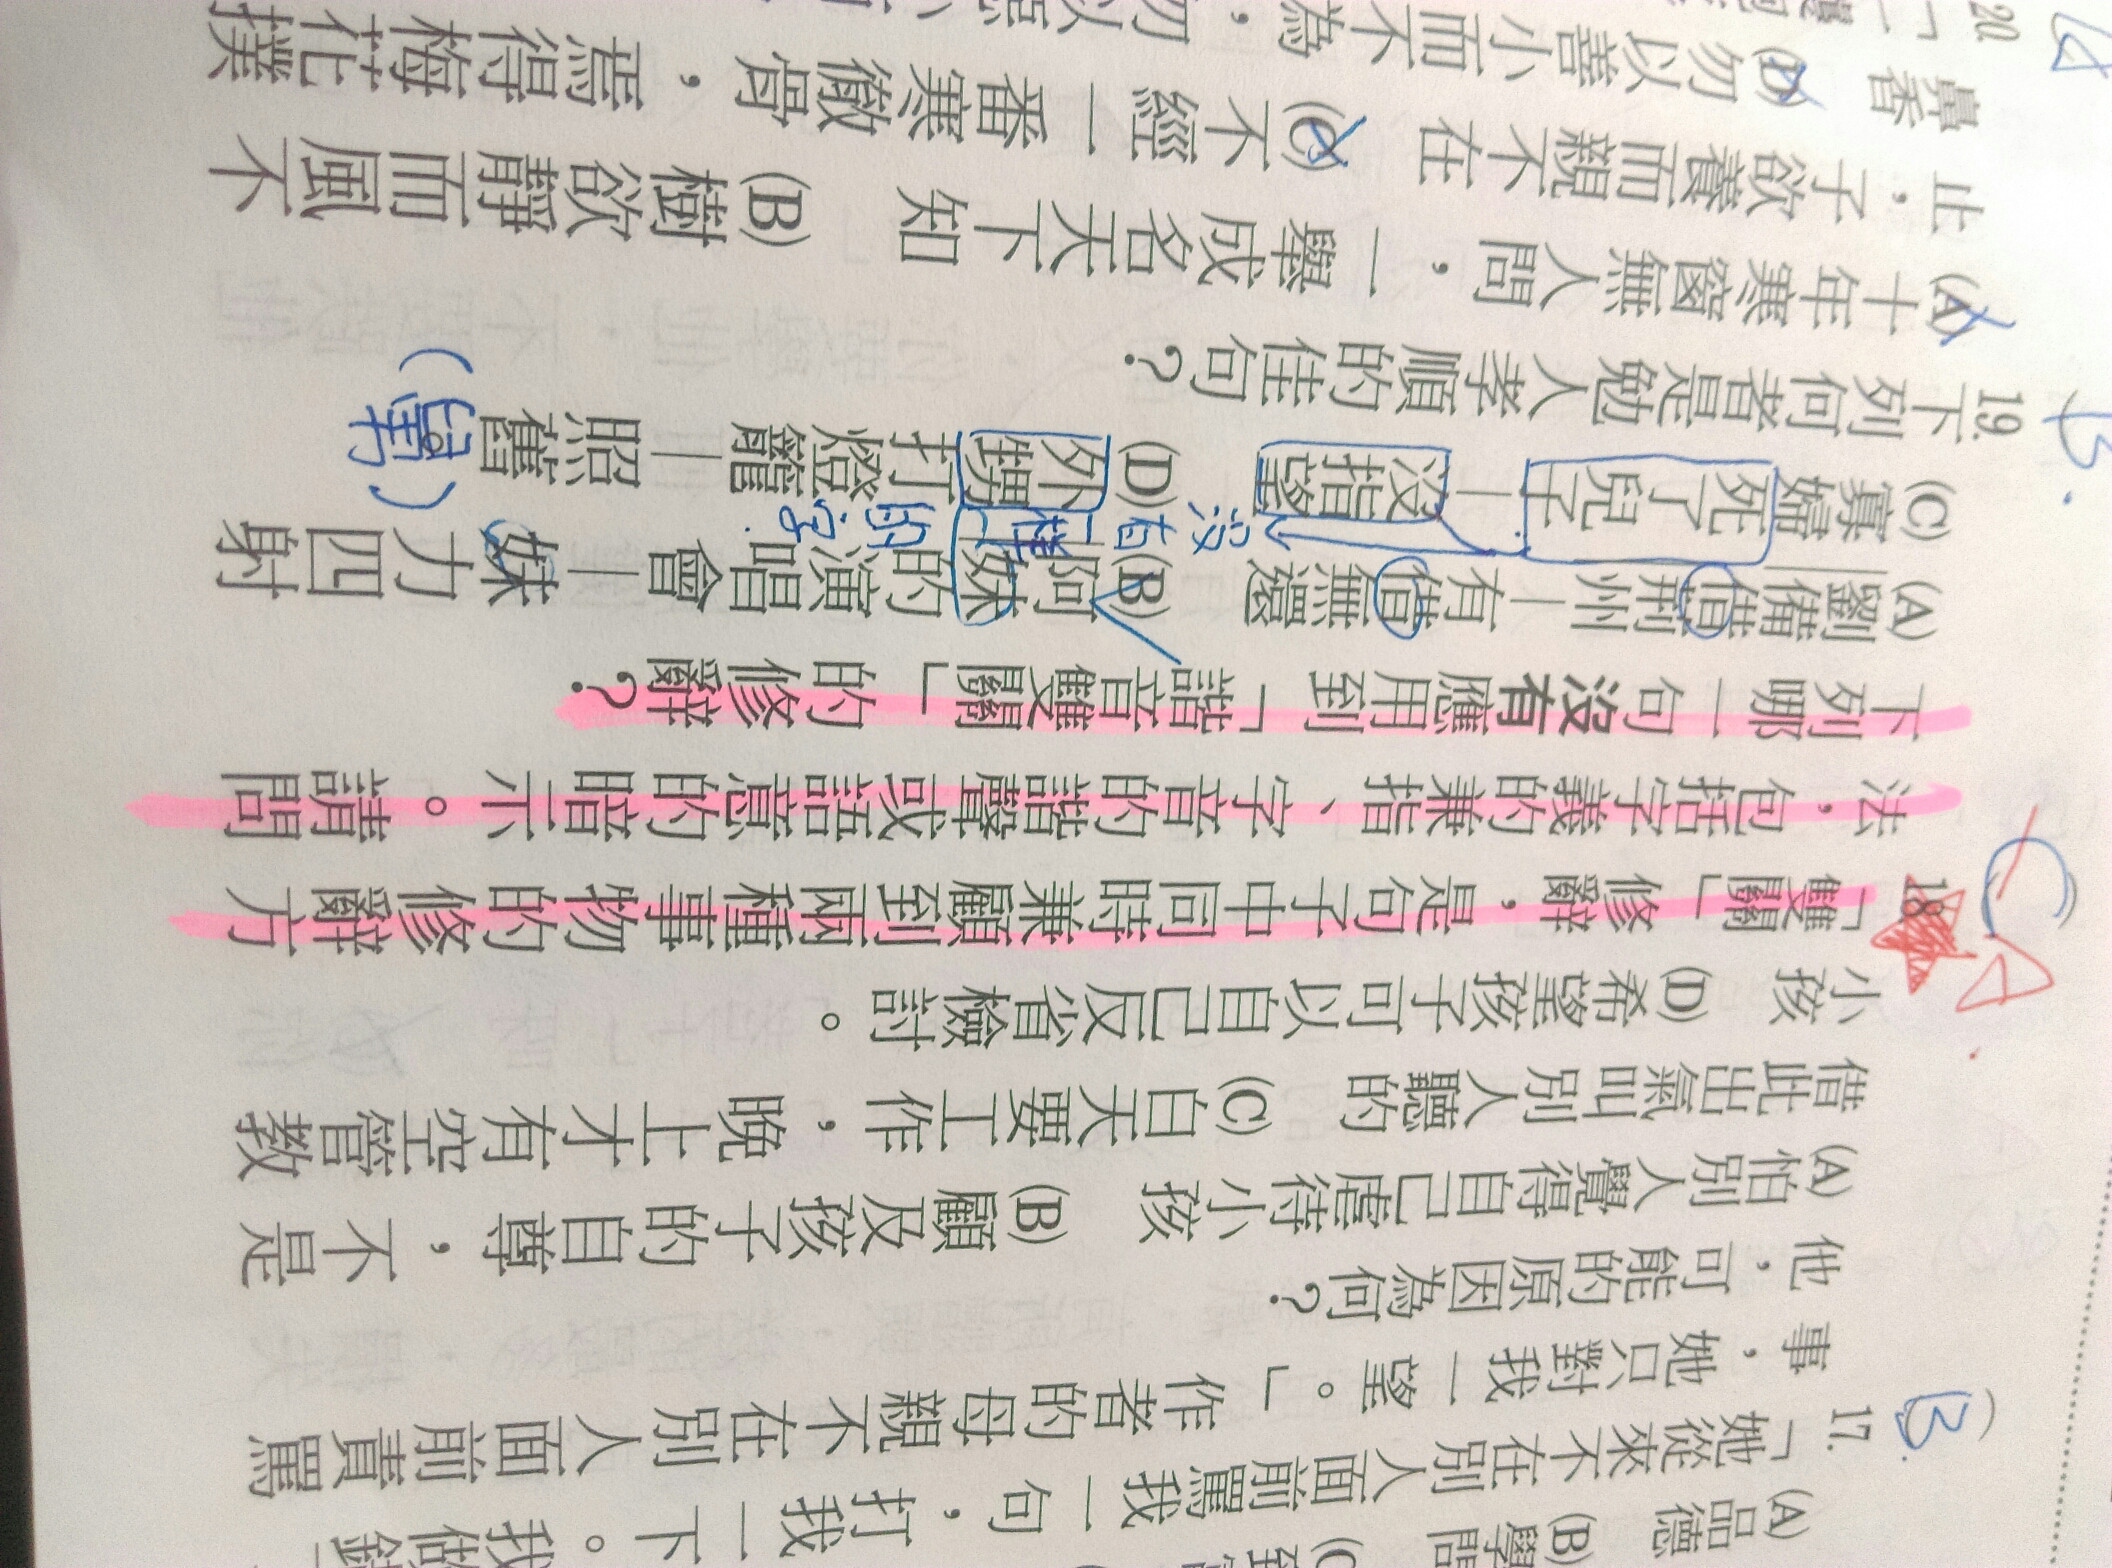 (A)品德 (B)學問
B 17.「她從來不在別人面前罵我一句，打我一下。我做錯
事，她只對我一望。」作者的母親不在別人面前責罵
他，可能的原因為何？
(A)怕別人覺得自己虐待小孩 (B)顧及孩子的自尊，不是
借此出氣叫別人聽的 (C)白天要工作，晚上才有空管教
小孩 (D)希望孩子可以自己反省檢討。
C A 18.「雙關」修辭，是句子中同時兼顧到兩種事物的修辭方
法，包括字義的兼指、字音的諧聲或語意的暗示。請問
下列哪一句沒有應用到「諧音雙關」的修辭？
(A)劉備借荊州─有借無還 (B)阿妹的演唱會─妹力四射
(C)寡婦死了兒子─沒指望 (D)外甥打燈籠─照舊
(舅)
B 19.下列何者是勉人孝順的佳句？
(A)十年寒窗無人問，一舉成名天下知 (B)樹欲靜而風不
止，子欲養而親不在 (C)不經一番寒徹骨，焉得梅花撲
鼻香 (D)勿以善小而不為，勿以惡小
20.